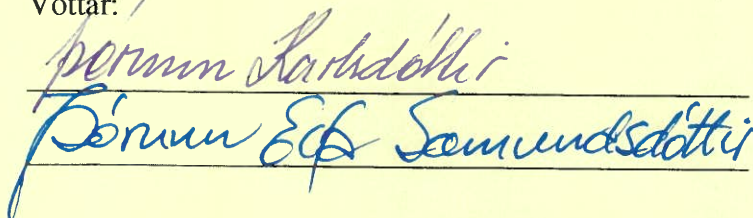 Vottar:
Þórunn Karlsdóttir
Þórunn Edda Sæmundsdóttir